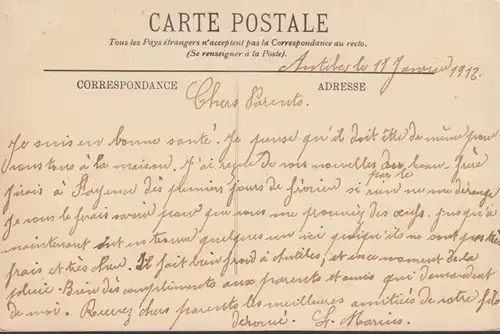 CARTE POSTALE
Tous les Pays étrangers n'acceptent pas la Correspondance au recto.
(Se renseigner à la Poste).
Antibes le 18 Janvier 1912.
CORRESPONDANCE
ADRESSE
Chers Parents.
Je suis en bonne santé. Je pense qu'il doit être de même pour
vous tous à la maison. J'ai reçu de vos nouvelles beau-frère
j'irais à Fayence dès premiers jours de février si rien ne me dérange
par la
Je vous le ferais savoir pour que vous me des œufs. jusqu'à
maintenant ont en trouve quelques un ici quoiqu'ils ne sont pas très
frais et très cher. Il fait bien froid à Antibes, et en ce moment de la
Bien des compliments aux parents et amis qui demandent
de moi. Recevez chers parents les meilleures amitiés de votre fils
dévoué. Marius